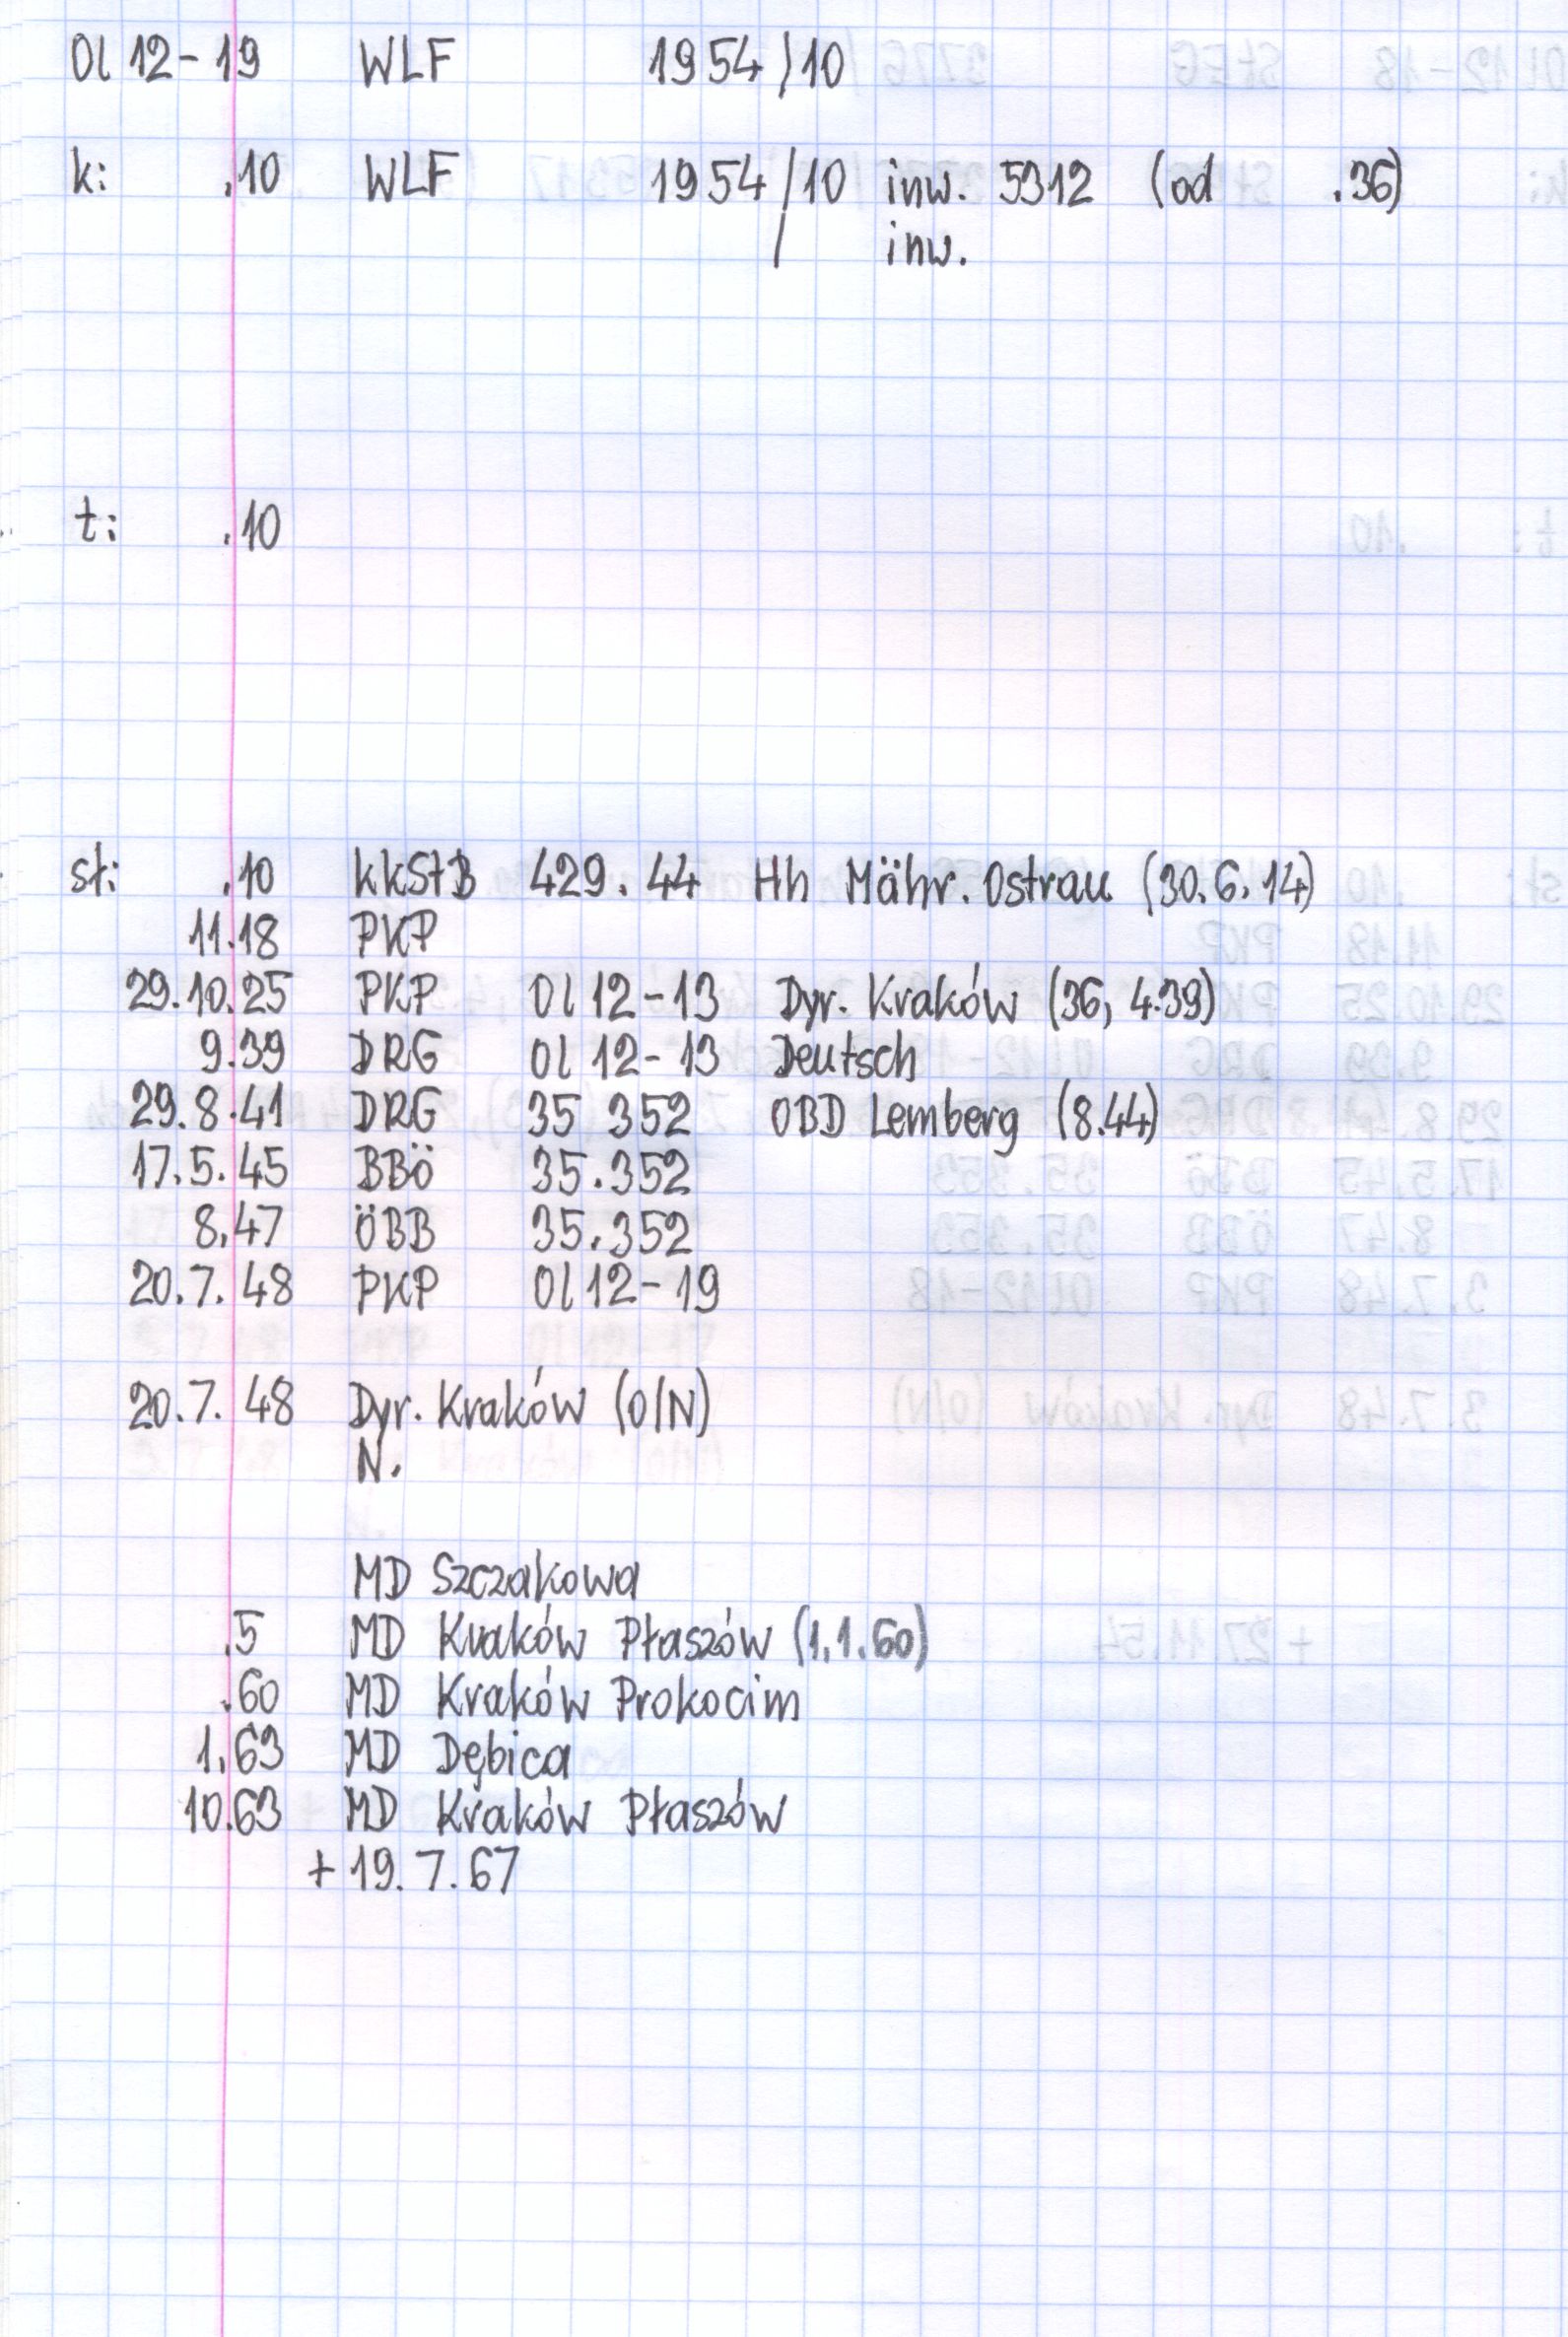 Ol 12-19 WLF 1954/10
k: .10 WLF 1954/10 inw. 5312 (od .36)
/ inw.
t: .10
st: .10 kkStB 429.44 Hh Mähr. Ostrau (30.6.14)
11.18 PKP
29.10.25 PKP Ol 12-13 Dyr. Kraków (36, 4.39)
9.39 DRG Ol 12-13 Deutsch
29.8.41 DRG 35 352 OBD Lemberg (8.44)
17.5.45 BBÖ 35.352
8.47 ÖBB 35.352
20.7.48 PKP Ol 12-19
20.7.48 Dyr. Kraków (O/N)
N.
MD Szczakowa
.5 MD Kraków Płaszów (1.1.60)
.60 MD Kraków Prokocim
1.63 MD Dębica
10.63 MD Kraków Płaszów
+ 19.7.67